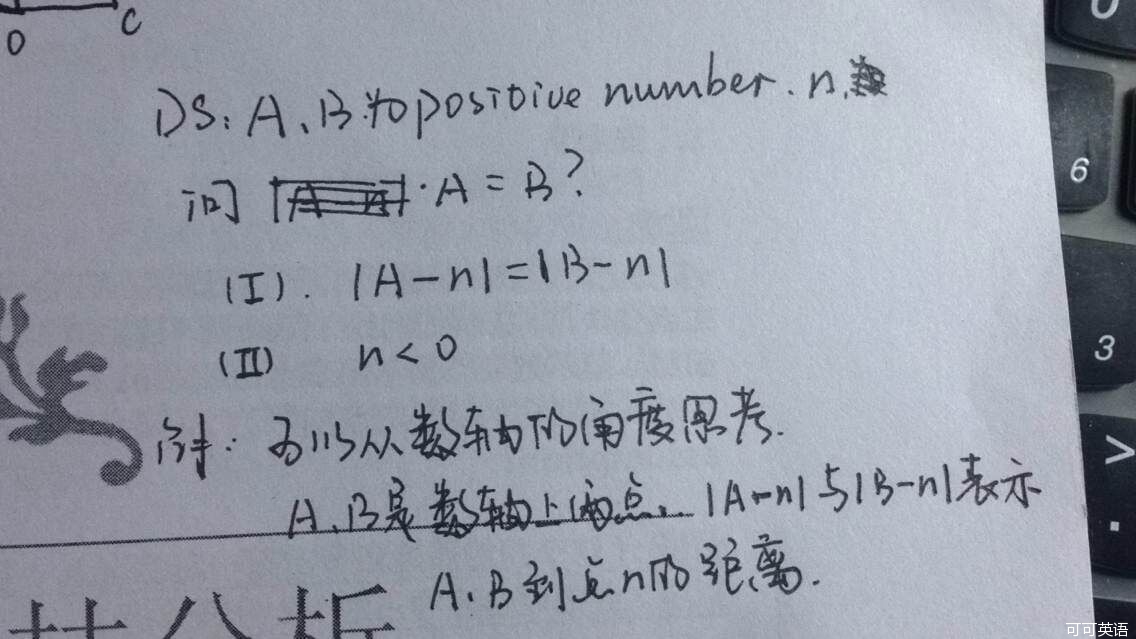 O C
DS: A、B为positive number. n.
问 · A = B?
(I). |A-n|=|B-n|
(II) n<0
解: 可以从数轴的角度思考.
A、B是数轴上两点. |A-n|与|B-n|表示
A、B到点n的距离.
分析
6
3
>
.
可可英语